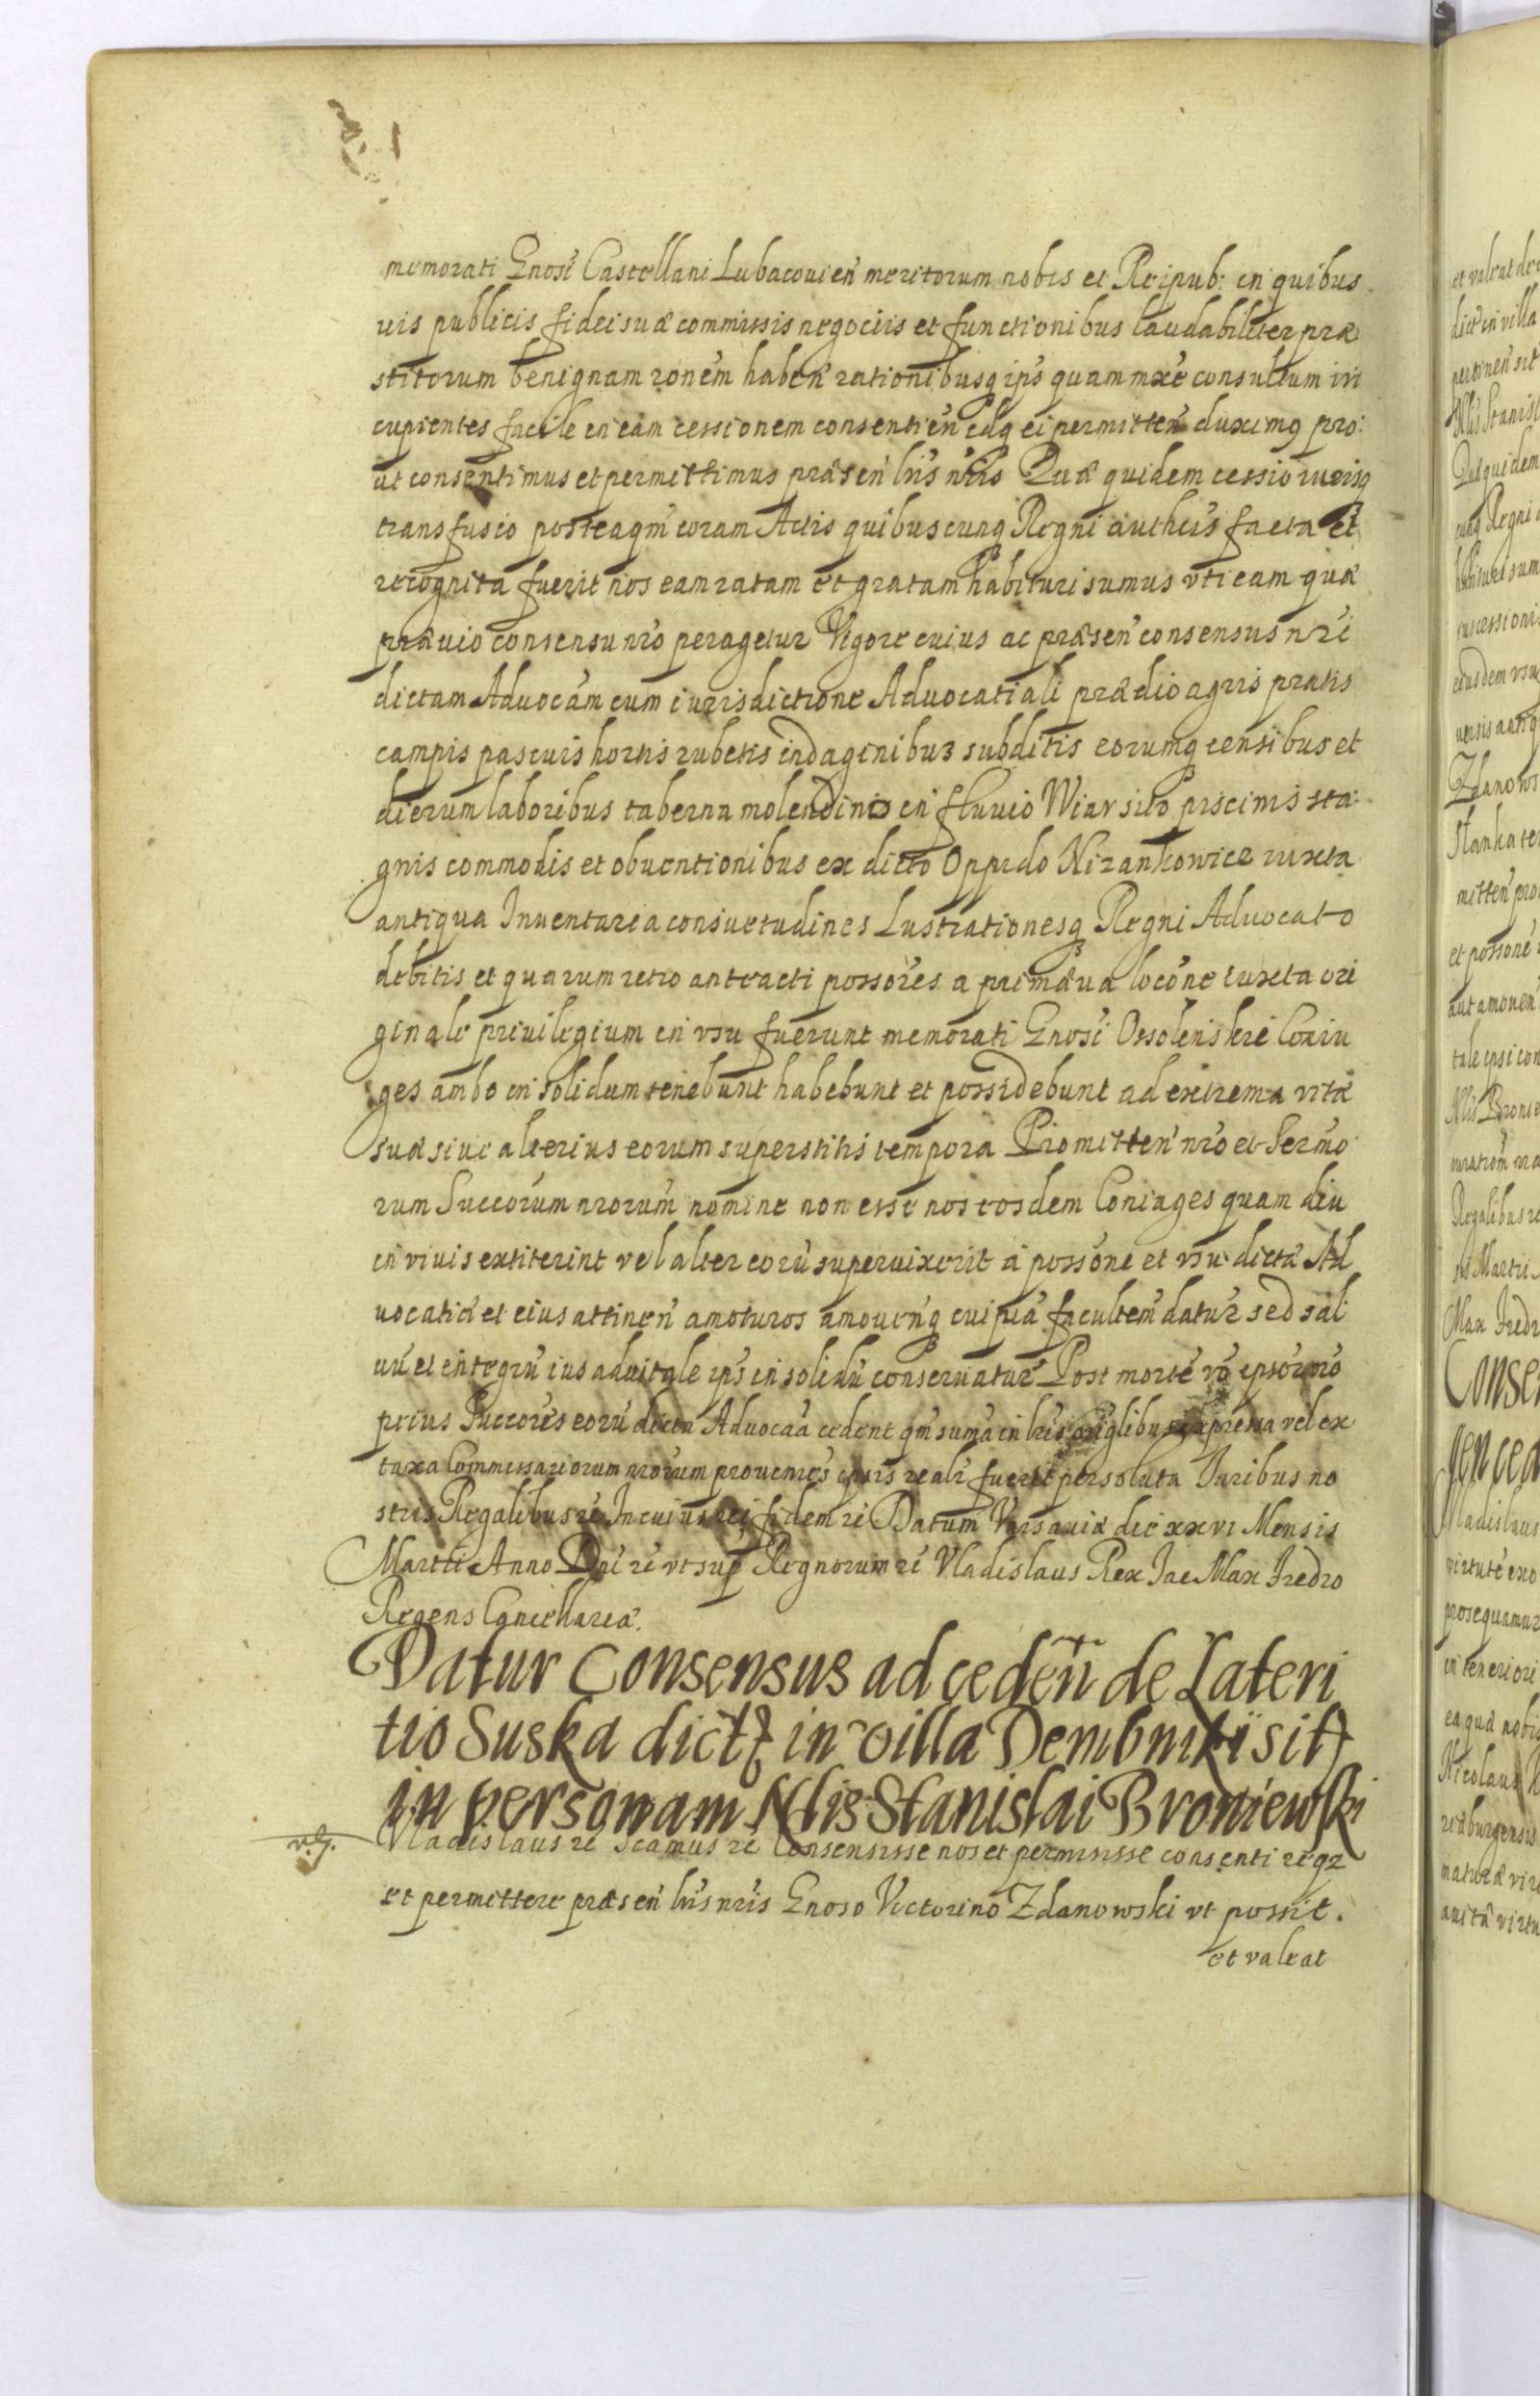 memorati Gnosi Castellani Lubacouien̄ meritorum nobis et Reipub: in quibus
vis publicis fidei suæ commissis negociis et functionibus laudabiliter præ
stitorum benignam rōnem haben̄ rationibusq ips̄ quam mxē consultum iri
cupientes facile in eam cessionem consentien̄ idq ei permitten̄ duximq pro:
ut consentimus et permittimus præsen̄ lr̄is nr̄is Quæ quidem cessio iurisq
transfusio posteaqm̄ coram Actis quibuscunq Regni autheīs facta et
recognita fuerit nos eam ratam et gratam habituri sumus vti eam quæ
præuio consensu nr̄o peragetur Vigore cuius ac præsen̄ consensus nr̄i
dictam Aduocām cum iurisdictione Aduocatiali prædio agris pratis
campis pascuis hortis rubetis indaginibus subditis eorumq censibus et
dierum laboribus taberna molendino in fluvio Wiar sito piscinis sta:
gnis commodis et obuentionibus ex dicto Oppido Nizankowice iuxta
antiqua Inuentaria consuetudines Lustrationesq Regni Aduocato
debitis et quarum retro anteacti possōres a primæua locōne iuxta ori
ginale priuilegium in vsu fuerunt memorati Gnosi Ossolenskie Coniu
ges ambo in solidum tenebunt habebunt et possidebunt ad extrema vitæ
suæ siue alterius eorum superstitis tempora Promitten̄ nr̄o et Serm̄o
rum Succōrum nr̄orum nomine non esse nos eosdem Coniuges quam diu
in viuis extiterint vel alter eorū superuixerit a possōne et vsu dictæ Ad
uocatiæ et eius attinen̄ amoturos amouen̄q cuipiā facultem̄ daturos sed sal
uū et integrū ius aduitale ips̄ in solidū conseruaturos Post mortē vō ipsōr nō
prius Succōres eorū dicta Aduocaā cedent qm̄ suma in lr̄is origlibus expressa vel ex
taxa Commissariorum nr̄orum proueniēs ipsis realr̄ fuerit persoluta Iuribus no
stris Regalibus rē In cuius rei fidem rē Datum Varsauiæ die xxvi Mensis
Martii Anno Dn̄i rē vt sup̄ Regnorum rē Vladislaus Rex Iac Max Fredro
Regens Cancellariæ.
Datur Consensus ad ceden̄ de Lateri
tio Suska dictꝭ in villa Dembniki sitꝭ
in personam Nlis Stanislai Broniewski
Vladislaus rē Sc̄amus rē Consensisse nos et permisisse consentireqz
et permittere præsen̄ lr̄is nr̄is Gnoso Victorino Zdanowski vt possit.
et valeat